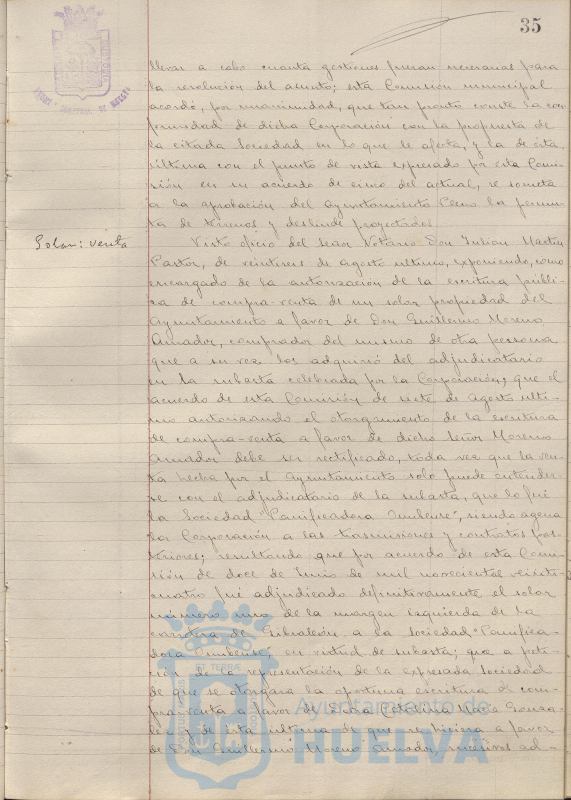 35
llevar a cabo cuantas gestiones fueran necesarias para
la resolución del asunto; esta Comisión municipal
acordó, por unanimidad, que tan pronto conste la con-
formidad de dicha Corporación con la propuesta de
la citada Sociedad en lo que le afecta, y la de ésta
última con el punto de vista expresado por esta Comi-
sión en su acuerdo de cinco del actual, se someta
a la aprobación del Ayuntamiento Pleno la permu-
ta de terrenos y deslinde proyectados.
Solar: venta
Visto oficio del Señor Notario Don Julian Martin
Pastor, de veintitres de Agosto ultimo, exponiendo, como
encargado de la autorización de la escritura públi-
ca de compra-venta de un solar propiedad del
Ayuntamiento a favor de Don Guillermo Moreno
Amador, comprador del mismo de otra persona
que a su vez los adquirió del adjudicatario
en la subasta celebrada por la Corporación, que el
acuerdo de esta Comisión de siete de Agosto ulti-
mo autorizando el otorgamiento de la escritura
de compra-venta a favor de dicho Señor Moreno
Amador debe ser rectificado, toda vez que la ven-
ta hecha por el Ayuntamiento solo puede entender-
se con el adjudicatario de la subasta, que lo fué
la Sociedad "Panificadora Onubense", siendo agena
la Corporación a las trasmisiones y contratos pos-
teriores; resultando que por acuerdo de esta Comi-
sión de doce de Junio de mil novecientos veinti-
cuatro fué adjudicado definitivamente el solar
número uno de la margen izquierda de la
carretera de Gibraleón a la Sociedad "Panifica-
dora Onubense" en virtud de subasta; que a peti-
ción de la representación de la expresada Sociedad
de que se otorgara la oportuna escritura de com-
pra-venta a favor de Doña Catalina Macia Gonza-
lez y de ésta ultima de que se hiciera a favor
de Don Guillermo Moreno Amador, sucesivos ad-
Ayuntamiento de
HUELVA